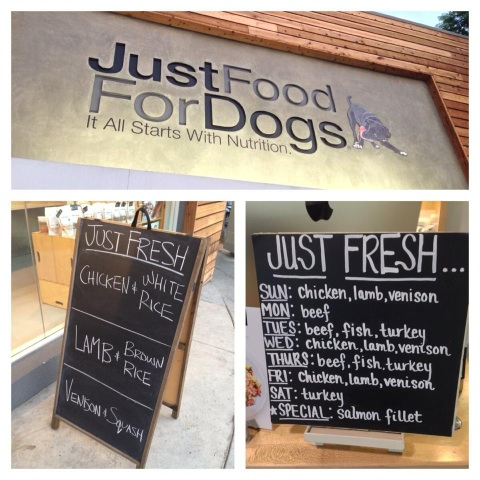 JustFood
ForDogs
It All Starts With Nutrition.
JUST FRESH
CHICKEN & WHITE
RICE
LAMB & BROWN
RICE
VENISON & SQUASH
JUST FRESH...
SUN: chicken, lamb, venison
MON: beef
TUES: beef, fish, turkey
WED: chicken, lamb, venison
THURS: beef, fish, turkey
FRI: chicken, lamb, venison
SAT: turkey
*SPECIAL: salmon fillet